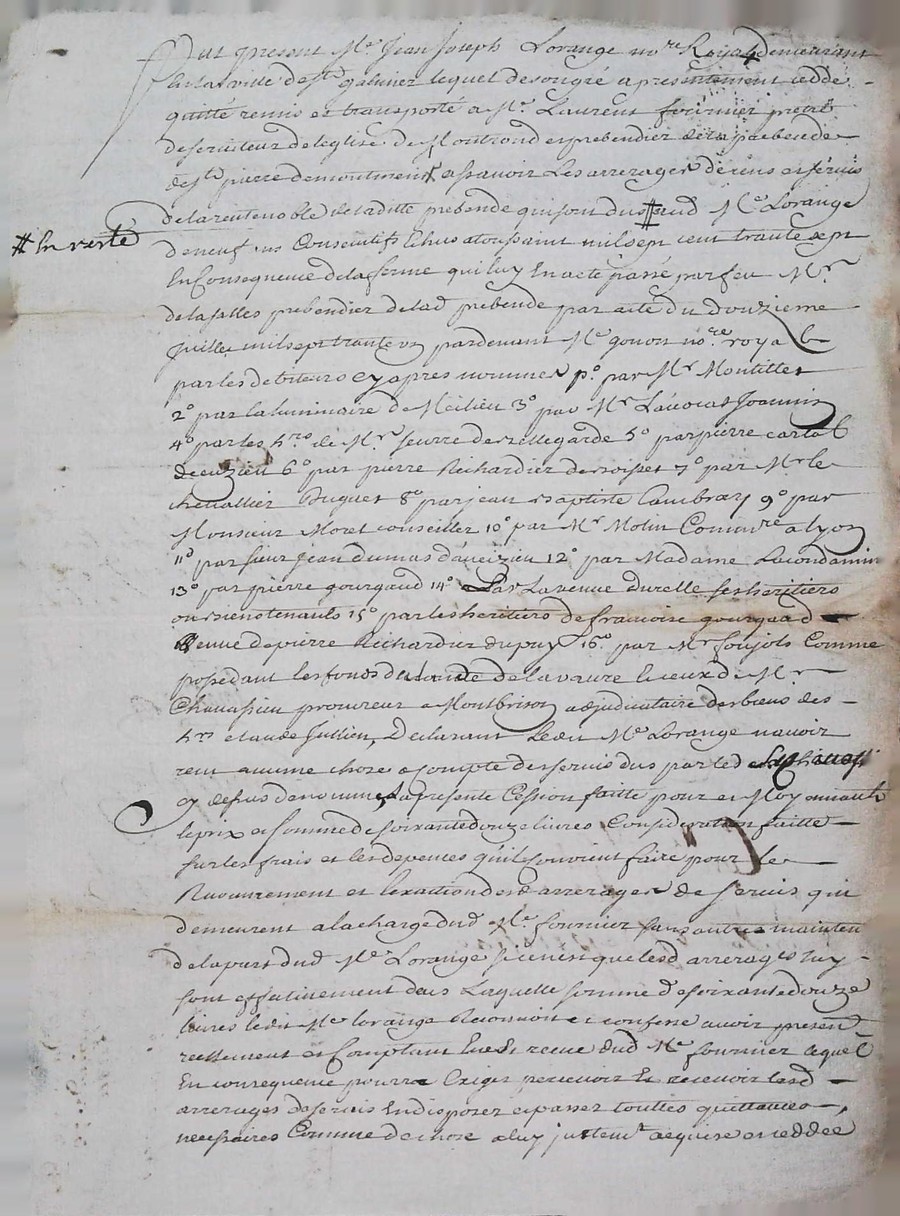 fut present Me Jean Joseph Lorange nore Royal demeurant
en la ville de st galmier lequel de son gré a presentement cedde
quitté remis et transporté a Mr Laurent fournier pretre
deserviteur de leglise de Montrond et prebendier de la prebende
de st pierre de montmen assavoir Les arrerages de cens et servis
de la rente noble de laditte prebende qui sont dus aud Me Lorange
# En reste
de neuf ans Consecutifs Echus a toussaint mil sept cent trante sept
En Consequence de la ferme qui luy En a eté passé par feu Mr
de la salles prebendier de lad prebende par acte du Douzieme
Juillet mil sept trante un pardevant Me gonon nore royal
par les debiteurs cy apres nommes po par Mr Montillet
2o par la luminaire de Meilieu 3o par Mr Lavocat Joannin
4o par les hrs de Mr seurre de bellegarde 5o par pierre cartal
de cuzieu 6o par pierre Richardier de boisset 7o par Mr le
chevallier Duguet 8o par jean baptiste Cambray 9o par
Monsieur Moret conseiller 10o par Mr Molin Commre a lyon
11o par sieur jean dumas d'uneizieu 12o par Madame Lacondamin
13o par pierre gourgaud 14o Par La veuve durelle ses heritiers
ou bientenants 15o par les heritiers de francoise gourgaud
veuve de pierre Richardier du puy 16o par Mr soujols Comme
possedant les fonds du de la vaure lieux de Mr
Chavassieu procureur a Montbrison adjudicataire des biens des
hrs claude Jullien, Declarant ledit Me Lorange n'avoir
receu aucune chose a compte des servis dus par led
cy dessus denommes la presente Cession faitte pour et Moyennant
le prix et somme de soixante douze livres Consideration faitte
sur les frais et les depences qu'il convient faire pour le
Recouvrement et lexaction desd arrerages de servis qui
demeurent a la charge dud Me fournier sans autre mainten
de la part dud Me Lorange si ce nest que lesd arrerages luy
sont effectivement deus Laquelle somme de soixante douze
livres ledit Me lorange Reconnoit et confesse avoir presen
reellement et Comptant Eue et receue dud Me fournier lequel
En consequence pourra Exiger percevoir Et recevoir lesd
arrerages de servis En disposer et passer touttes quittances
necessaires Comme de chose a luy justemt acquise et ceddee